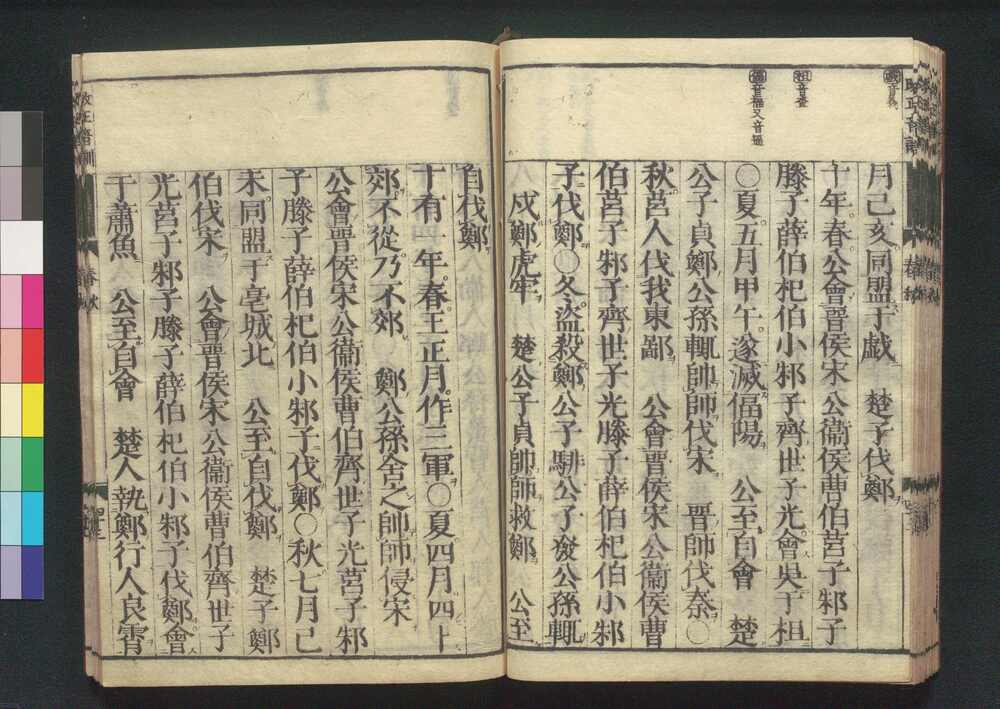 戲音義
柤音査
偪音福又音逼
月己亥同盟于戯　楚子伐鄭
十年春公會晋侯宋公衞侯曹伯莒子邾子
滕子薛伯杞伯小邾子齊世子光會吳于柤
○夏五月甲午遂滅偪陽　公至自會　楚
公子貞鄭公孫輒帥師伐宋　晋師伐秦○
秋莒人伐我東鄙　公會晋侯宋公衞侯曹
伯莒子邾子齊世子光滕子薛伯杞伯小邾
子伐鄭○冬盗殺鄭公子騑公子發公孫輒
戍鄭虎牢　楚公子貞帥師救鄭　公至
自伐鄭
十有一年春王正月作三軍○夏四月四卜
郊不從乃不郊　鄭公孫舍之帥師侵宋
公會晋侯宋公衞侯曹伯齊世子光莒子邾
子滕子薛伯杞伯小邾子伐鄭○秋七月己
未同盟于亳城北　公至自伐鄭　楚子鄭
伯伐宋　公會晋侯宋公衞侯曹伯齊世子
光莒子邾子滕子薛伯杞伯小邾子伐鄭會
于蕭魚　公至自會　楚人執鄭行人良霄
改正音訓
春秋